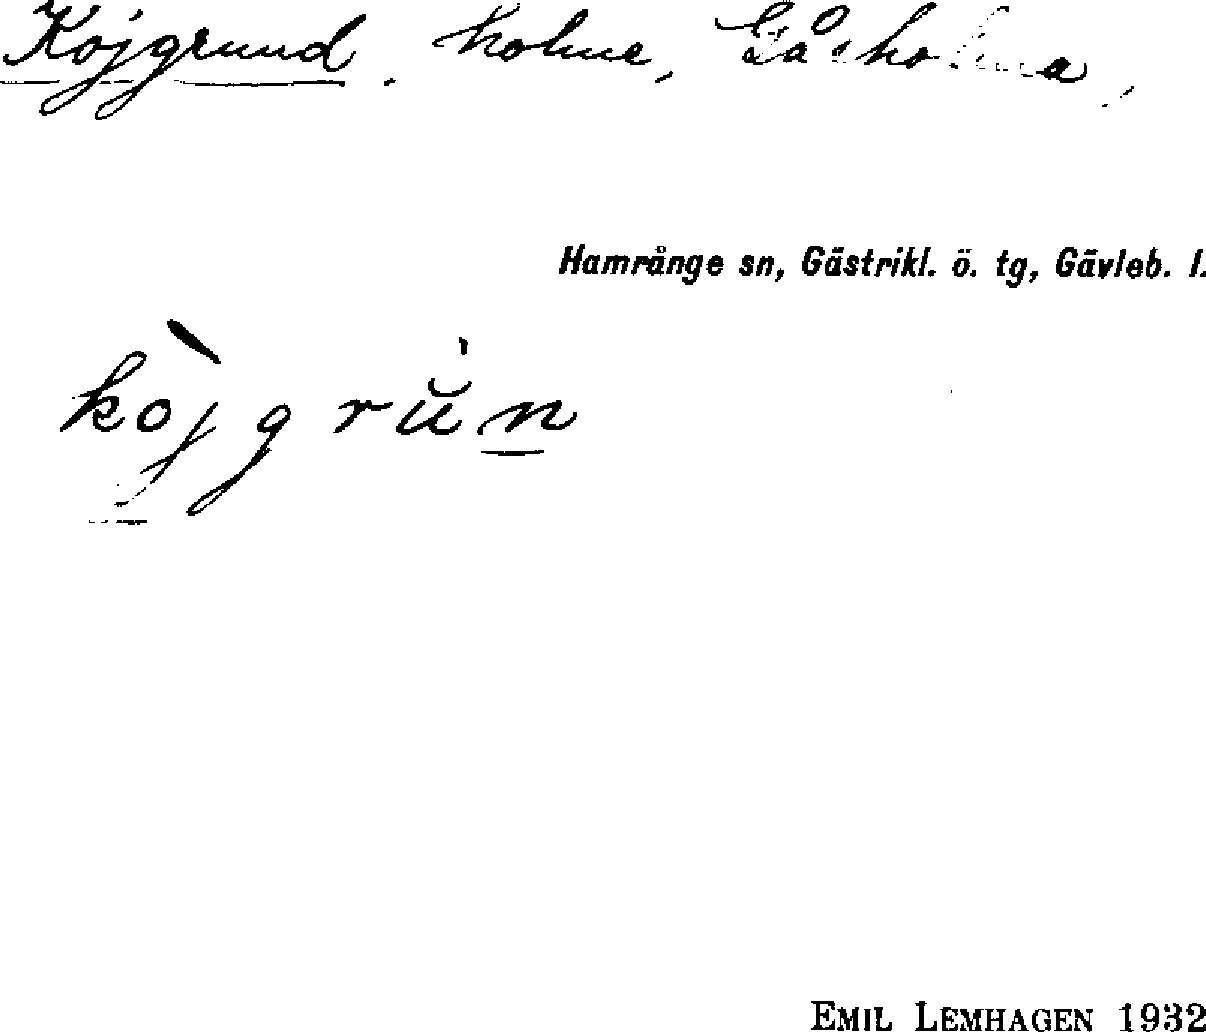 Kojgrund. holme, Gåsholma,
Hamrånge sn, Gästrikl. ö. tg, Gävleb. l.
kòjgrŭ'n
EMIL LEMHAGEN 1932